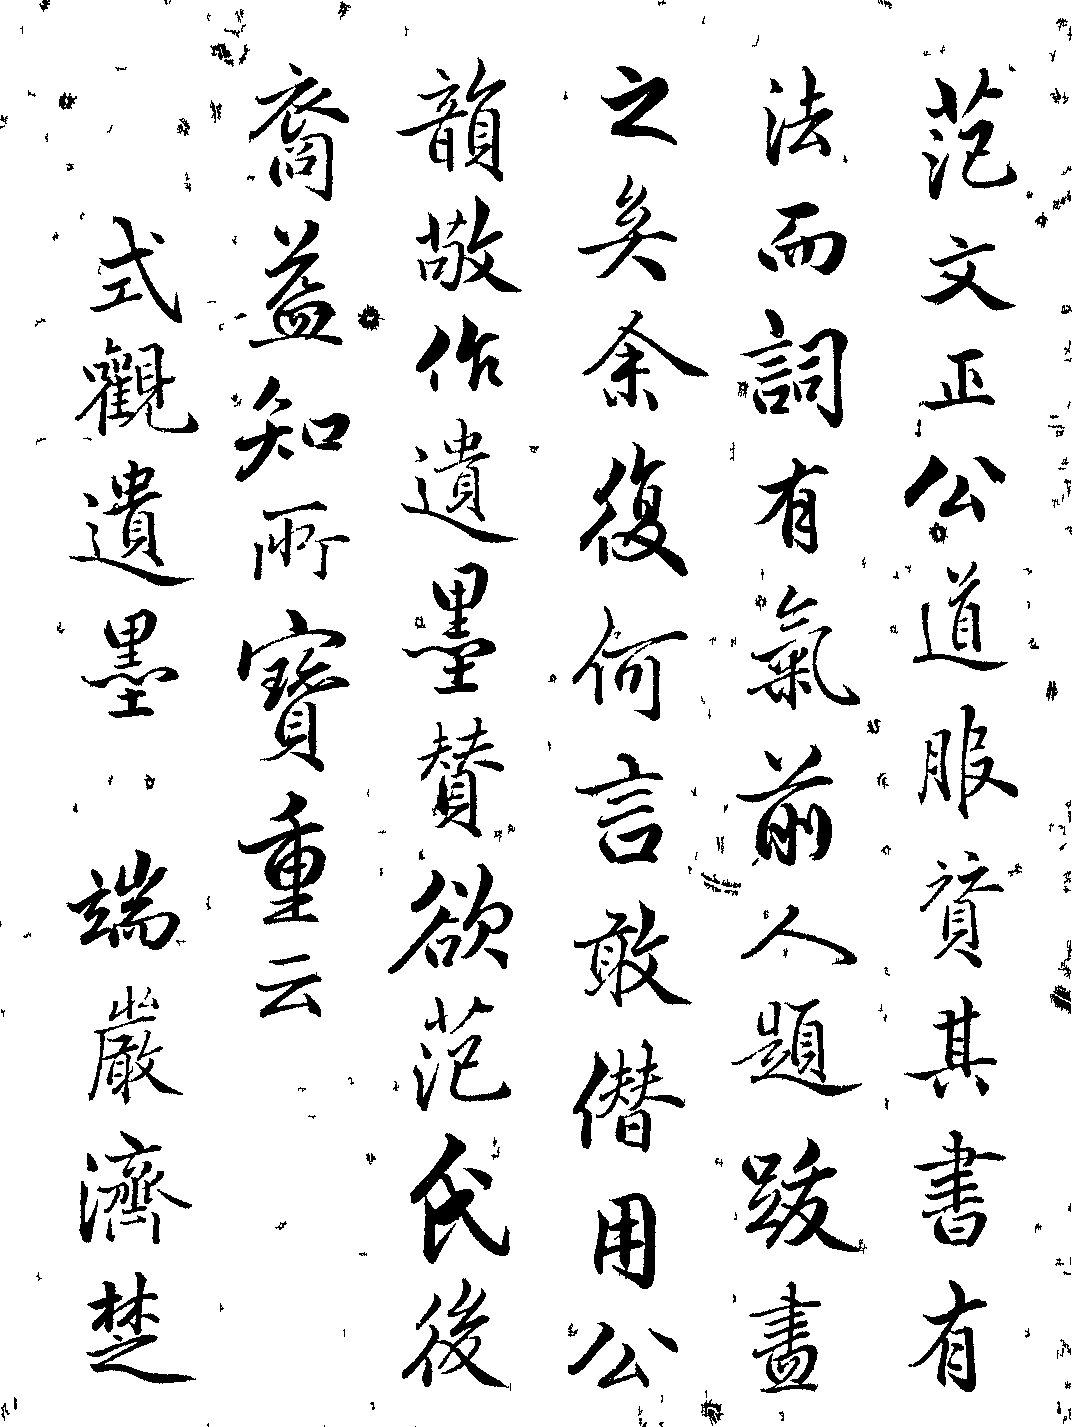 范文正公道服賛其書有
法而詞有氣前人題跋盡
之矣余復何言敢僭用公
韻敬作遺墨賛欲范氏後
裔益知所寶重云
式觀遺墨端嚴濟楚